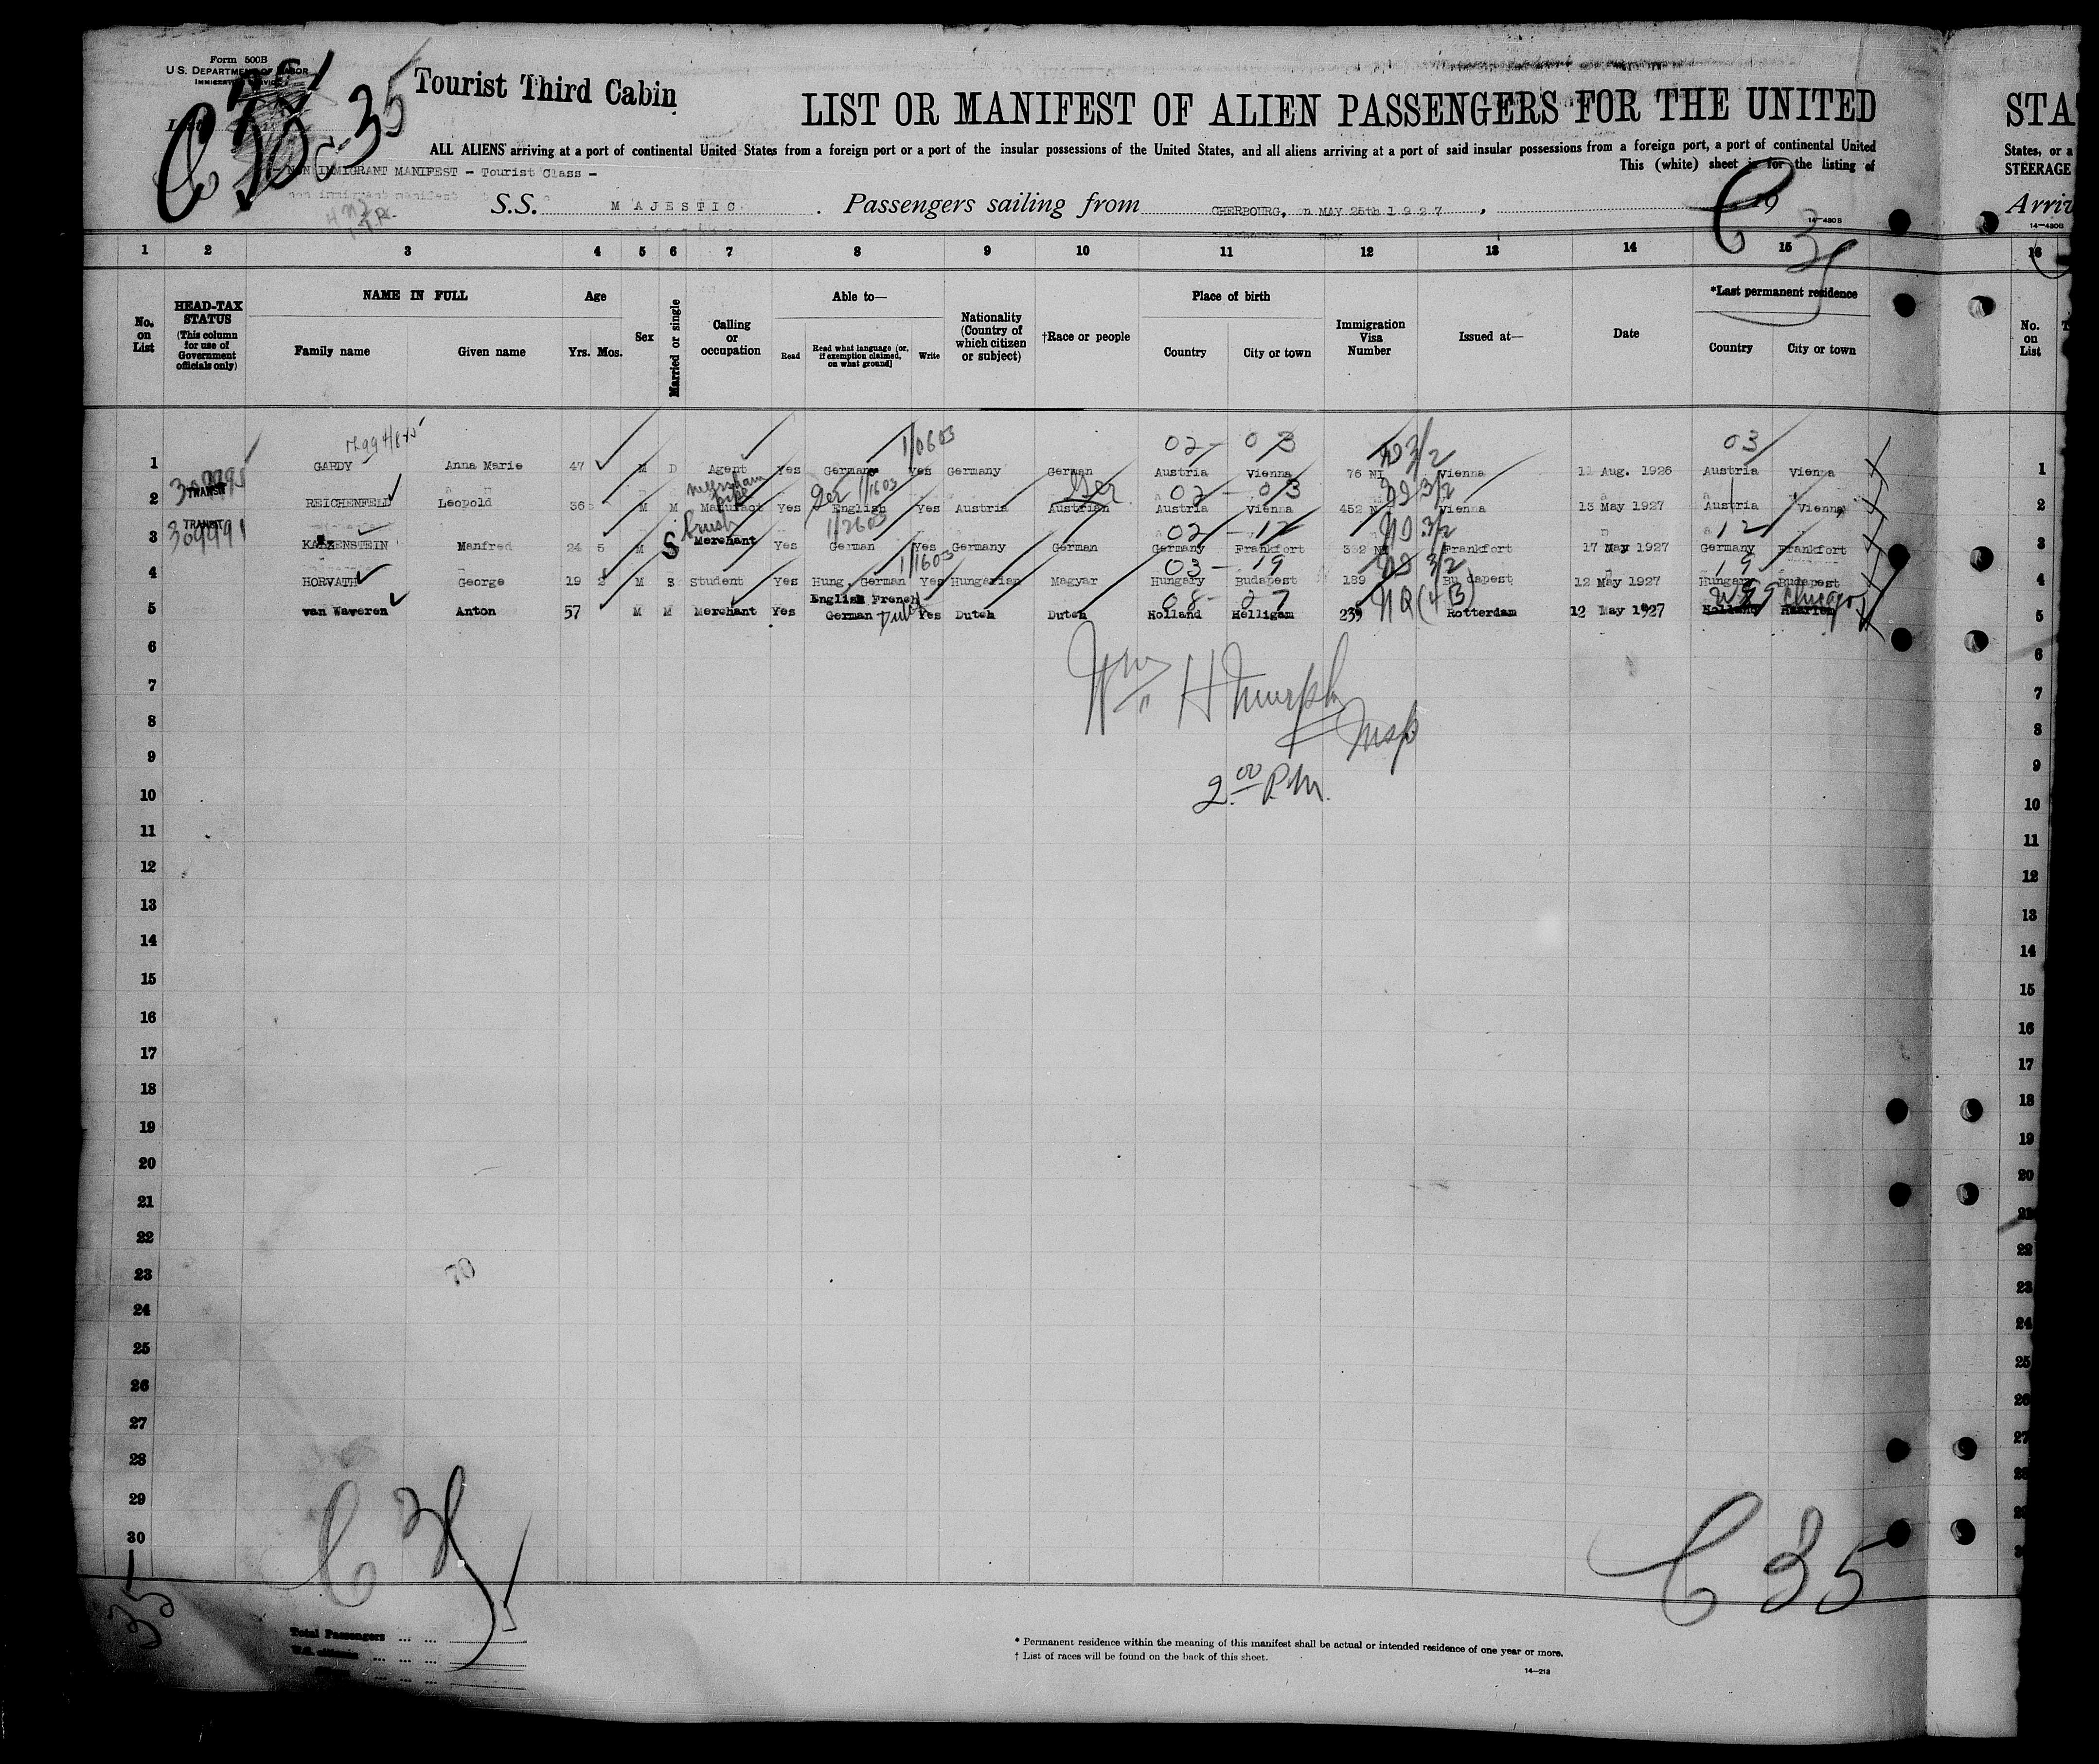 Form 500B
U.S. DEPARTMENT OF LABOR
IMMIGRATION SERVICE
Tourist Third Cabin
C 35
LIST OR MANIFEST OF ALIEN PASSENGERS FOR THE UNITED
STA
ALL ALIENS arriving at a port of continental United States from a foreign port or a port of the insular possessions of the United States, and all aliens arriving at a port of said insular possessions from a foreign port, a port of continental United
States, or a
NON IMMIGRANT MANIFEST - Tourist Class -
This (white) sheet is for the listing of
STEERAGE
S.S. MAJESTIC. Passengers sailing from CHERBOURG, n MAY 25th 1927, 19
Arriv
14-430B
14-430B
1 2 3 4 5 6 7 8 9 10 11 12 13 14 15 16
No. on List
HEAD-TAX STATUS
(This column for use of Government officials only)
NAME IN FULL
Family name Given name
Age
Yrs. Mos.
Sex
Married or single
Calling or occupation
Able to—
Read
Read what language [or, if exemption claimed, on what ground]
Write
Nationality (Country of which citizen or subject)
†Race or people
Place of birth
Country City or town
Immigration Visa Number
Issued at—
Date
*Last permanent residence
Country City or town
No. on List
02 - 03 03
1 GARDY Anna Marie 47 M D Agent Yes German Yes Germany German Austria Vienna 76 NI Vienna 11 Aug. 1926 Austria Vienna 1
TRANSIT
Ger Ger 02 - 03
2 REICHENFELD Leopold 36 M M Manufact Yes English Yes Austria Austrian Austria Vienna 452 Vienna 13 May 1927 Austria Vienna 2
TRANSIT
02 - 12 12
3 KATZENSTEIN Manfred 24 5 M S Merchant Yes German Yes Germany German Germany Frankfort Frankfort 17 May 1927 Germany Frankfort 3
03 - 19 19
4 HORVATH George 19 2 M S Student Yes Hung. German Yes Hungarian Magyar Hungary Budapest 189 Budapest 12 May 1927 Hungary Budapest 4
English French 08 - 27 Chicago
5 van Waveren Anton 57 M M Merchant Yes German Dutch Yes Dutch Dutch Holland Helligam 239 Rotterdam 12 May 1927 Holland Haarlem 5
6 6
Wm H Murphy
7 7
Insp
8 8
9 9
2.00 P.M.
10 10
11 11
12 12
13 13
14 14
15 15
16 16
17 17
18 18
19 19
20 20
21 21
22 22
23 70 23
24 24
25 25
26 26
27 27
28 28
29 29
30
C 35
C 35
35
Total Passengers ... ...
U.S. citizens ... ... ...
* Permanent residence within the meaning of this manifest shall be actual or intended residence of one year or more.
† List of races will be found on the back of this sheet.
14-213